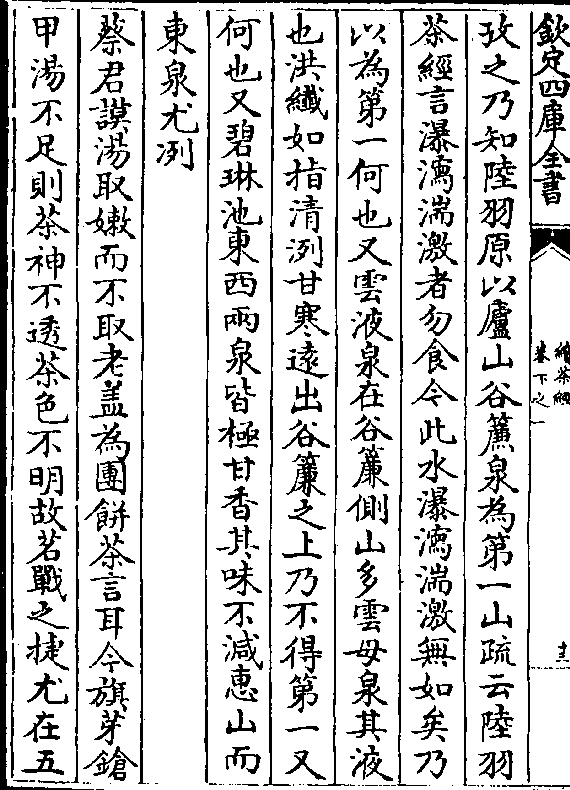 欽定四庫全書
續茶經
卷下之一
十三
攷之乃知陸羽原以廬山谷簾泉為第一山疏云陸羽
茶經言瀑瀉湍激者勿食今此水瀑瀉湍激無如矣乃
以為第一何也又雲液泉在谷簾側山多雲母泉其液
也洪纖如指清冽甘寒遠出谷簾之上乃不得第一又
何也又碧琳池東西兩泉皆極甘香其味不減惠山而
東泉尤冽
蔡君謨湯取嫩而不取老盖為團餅茶言耳今旗芽鎗
甲湯不足則茶神不透茶色不明故茗戰之捷尤在五